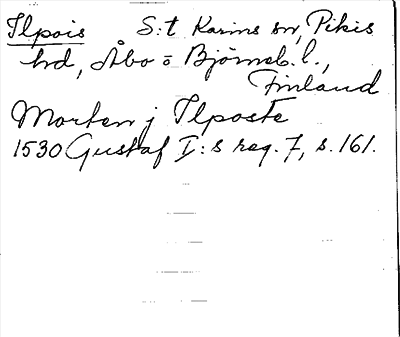 Ilpois S:t Karins sn, Pikis
hd, Åbo o Björneb. l.,
Finland
Morten j Ilposte
1530 Gustaf I:s reg. 7, s. 161.